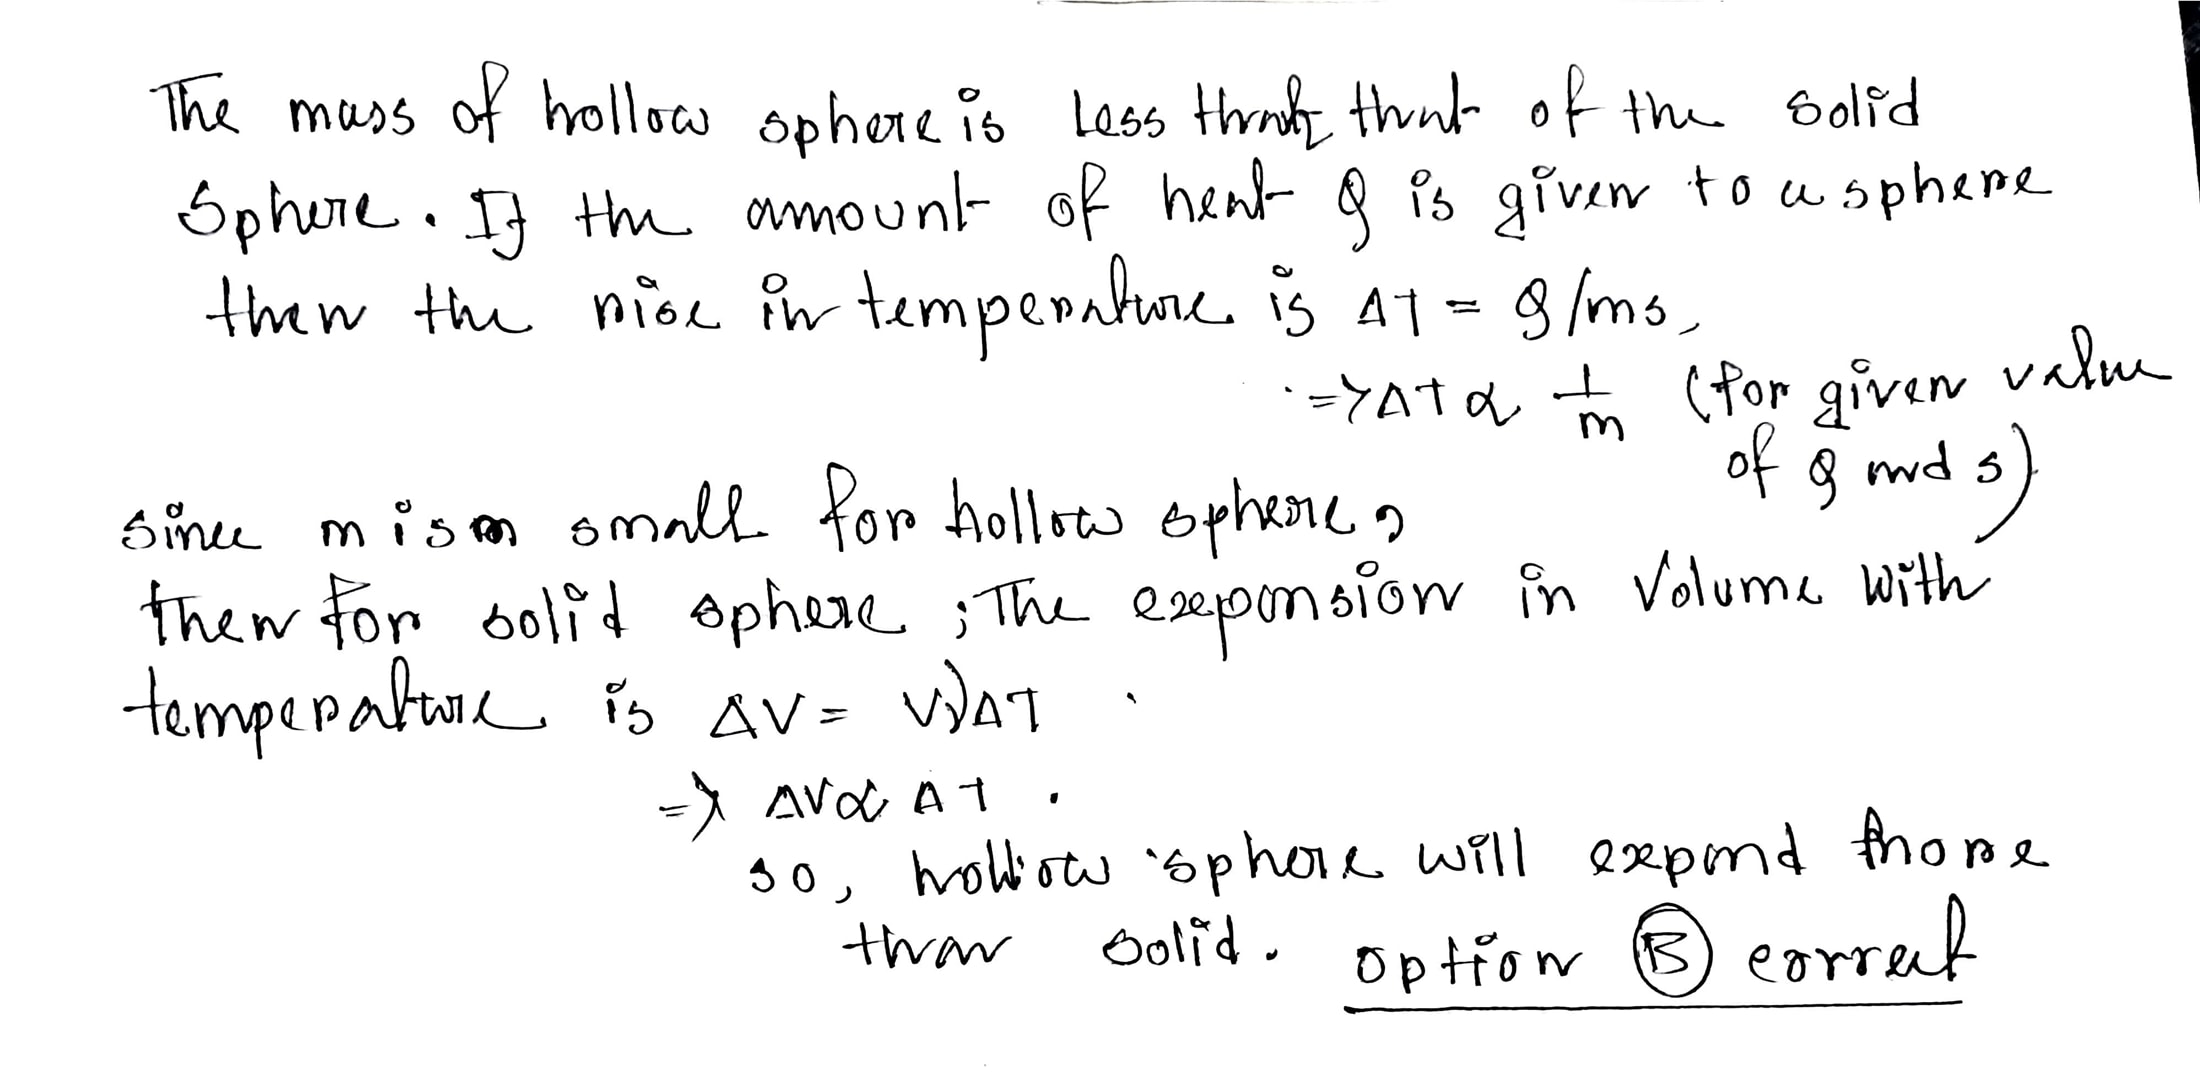 The mass of hollow sphere is Less than that of the solid
Sphere. If the amount of heat Q is given to a sphere
then the rise in temperature is ΔT = Q/ms,
=> ΔT α 1/m (for given value
of Q and s)
since m is small for hollow sphere,
then for solid sphere ; The expansion in Volume with
temperature is ΔV = VγΔT
=> ΔV α ΔT .
so, hollow sphere will expand more
than solid. option Ⓑ correct